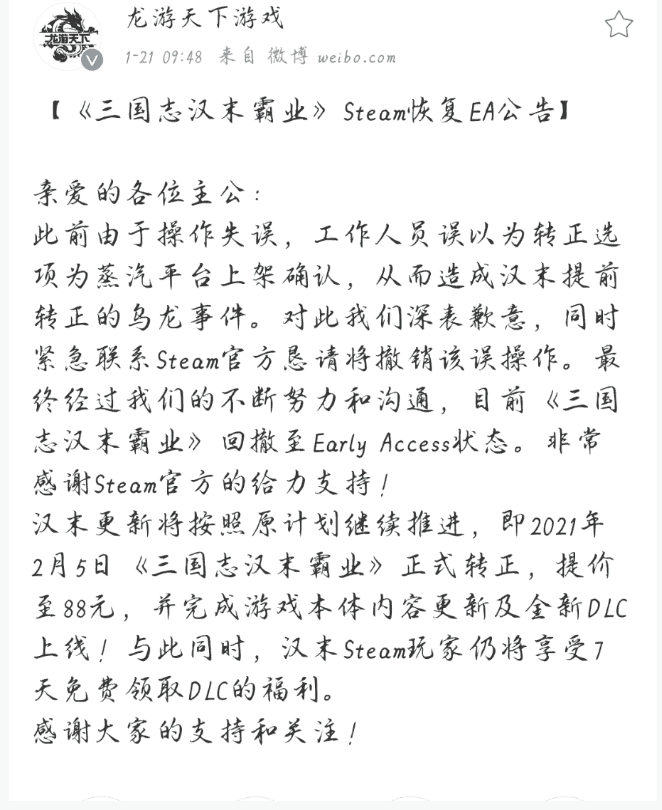 龙游天下游戏
龙游天下
1-21 09:48 来自 微博 weibo.com
【《三国志汉末霸业》Steam恢复EA公告】
亲爱的各位主公：
此前由于操作失误，工作人员误以为转正选
项为蒸汽平台上架确认，从而造成汉末提前
转正的乌龙事件。对此我们深表歉意，同时
紧急联系Steam官方恳请将撤销该误操作。最
终经过我们的不断努力和沟通，目前《三国
志汉末霸业》回撤至Early Access状态。非常
感谢Steam官方的给力支持！
汉末更新将按照原计划继续推进，即2021年
2月5日《三国志汉末霸业》正式转正，提价
至88元，并完成游戏本体内容更新及全新DLC
上线！与此同时，汉末Steam玩家仍将享受7
天免费领取DLC的福利。
感谢大家的支持和关注！